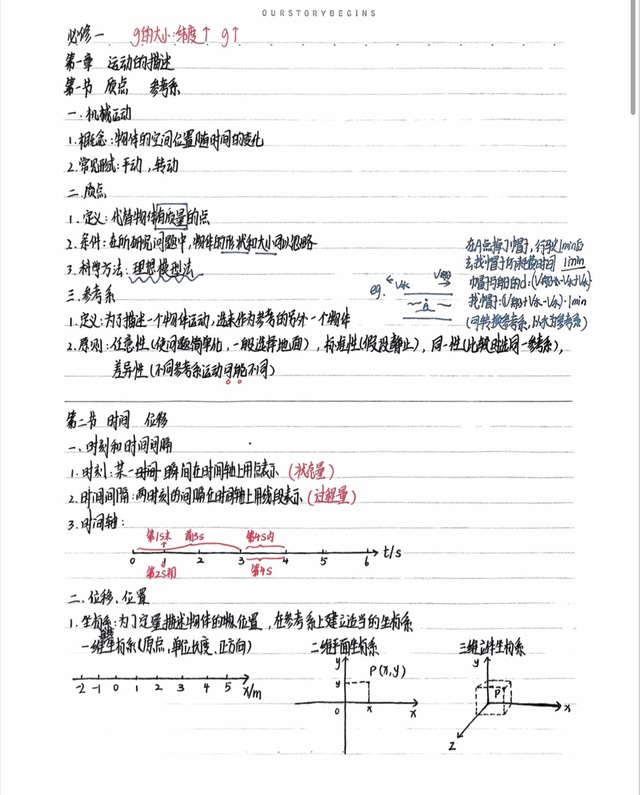 OURSTORYBEGINS
必修一 g的大小:纬度↑ g↑
第一章 运动的描述
第一节 质点 参考系
一.机械运动
1.概念:物体的空间位置随时间的变化
2.常见形式:平动,转动
二.质点
1.定义:代替物体有质量的点
2.条件:在所研究问题中,物体的形状和大小可以忽略
3.科学方法:理想模型法
在A点掉了帽子,行驶1min后
去找帽子所耗费时间 1min
帽子与船的d:(V船-V水+V水)
找帽子:(V船+V水-V水)·1min
(可转换参考系,以水为参考系)
eg. V水 V船
A
三.参考系
1.定义:为了描述一个物体运动,选来作为参考的另外一个物体
2.原则:任意性(使问题简单化,一般选择地面),标准性(假设静止),同一性(比较时选同一参考系),
差异性(不同参考系运动可能不同)
第二节 时间 位移
一.时刻和时间间隔
1.时刻:某一瞬间在时间轴上用点表示(状态量)
2.时间间隔:两时刻的间隔在时间轴上用线段表示(过程量)
3.时间轴:
第1s末 前3s 第4s内
0 1 2 3 4 5 6 t/s
第2s初 第4s
二.位移、位置
1.坐标系:为了定量描述物体的位置,在参考系上建立适当的坐标系
一维坐标系(原点,单位长度,正方向) 二维平面坐标系 三维立体坐标系
-2 -1 0 1 2 3 4 5 x/m
y P(x,y) y 0 x x
y P x z